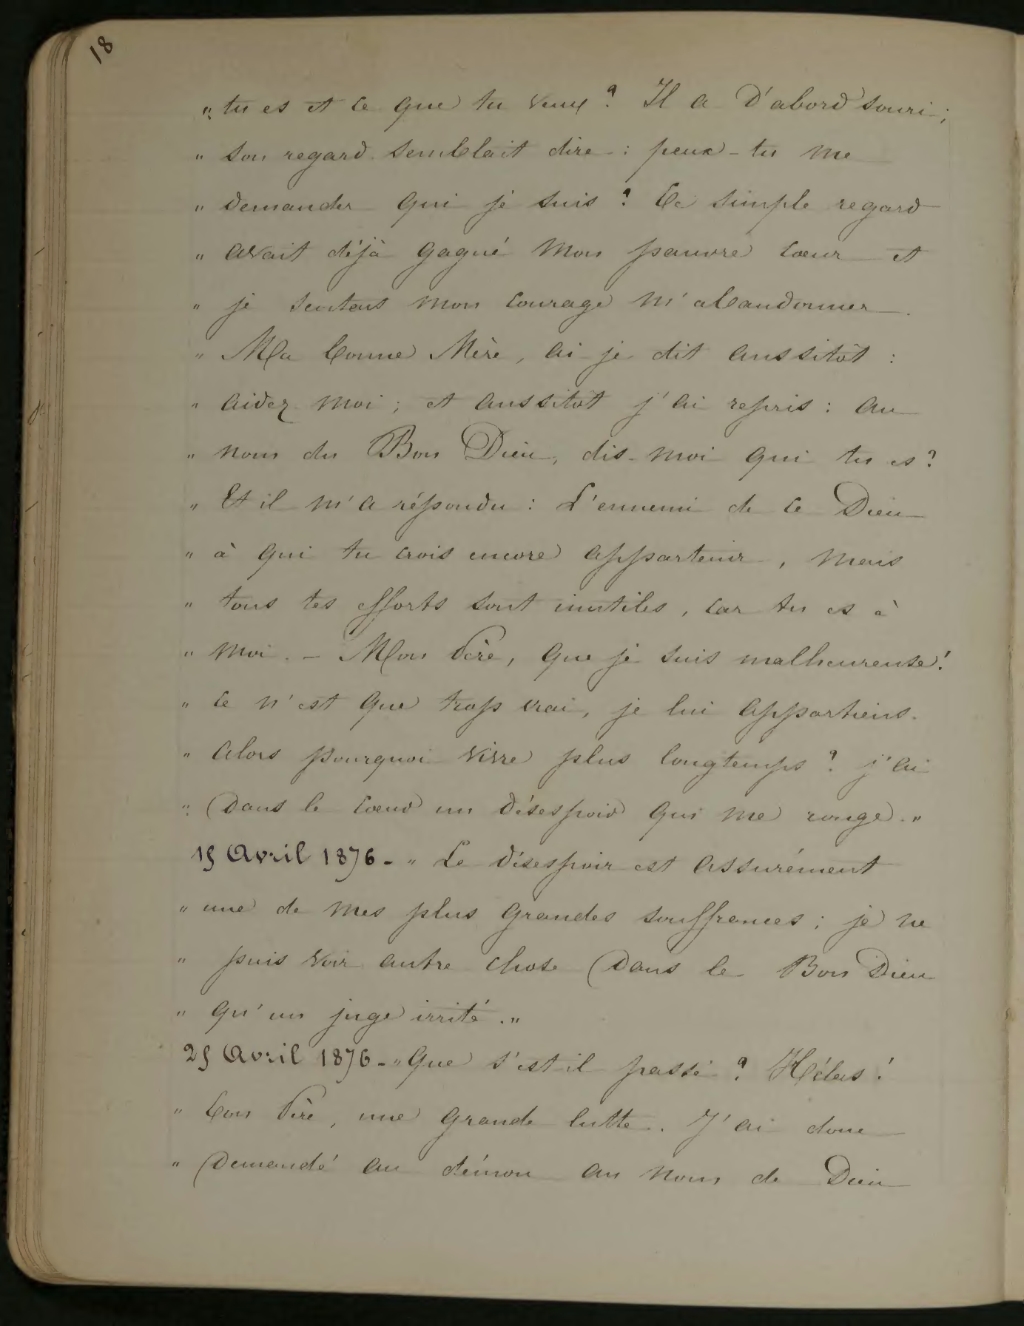 18
" tu es et ce que tu veux ? Il a d'abord souri ;
" son regard semblait dire : peux-tu me
" demander qui je suis ? Ce simple regard
" avait déjà gagné mon pauvre cœur et
" je sentais mon courage m'abandonner .
" Ma bonne Mère, ai-je dit aussitôt :
" aidez moi ; et aussitôt j'ai repris : au
" nom du Bon Dieu, dis-moi qui tu es ?
" Et il m'a répondu : L'ennemi de ce Dieu
" à qui tu crois encore appartenir, mais
" tous tes efforts sont inutiles, car tu es à
" moi. – Mon Père, que je suis malheureuse !
" ce n'est que trop vrai, je lui appartiens.
" alors pourquoi vivre plus longtemps ? j'ai
" dans le cœur un désespoir qui me ronge. "
15 Avril 1876 - " Le désespoir est assurément
" une de mes plus grandes souffrances ; je ne
" puis voir autre chose dans le Bon Dieu
" qu'un juge irrité. "
25 Avril 1876 - " Que s'est-il passé ? Hélas !
" bon Père, une grande lutte. J'ai donc
" demandé au démon au nom de Dieu